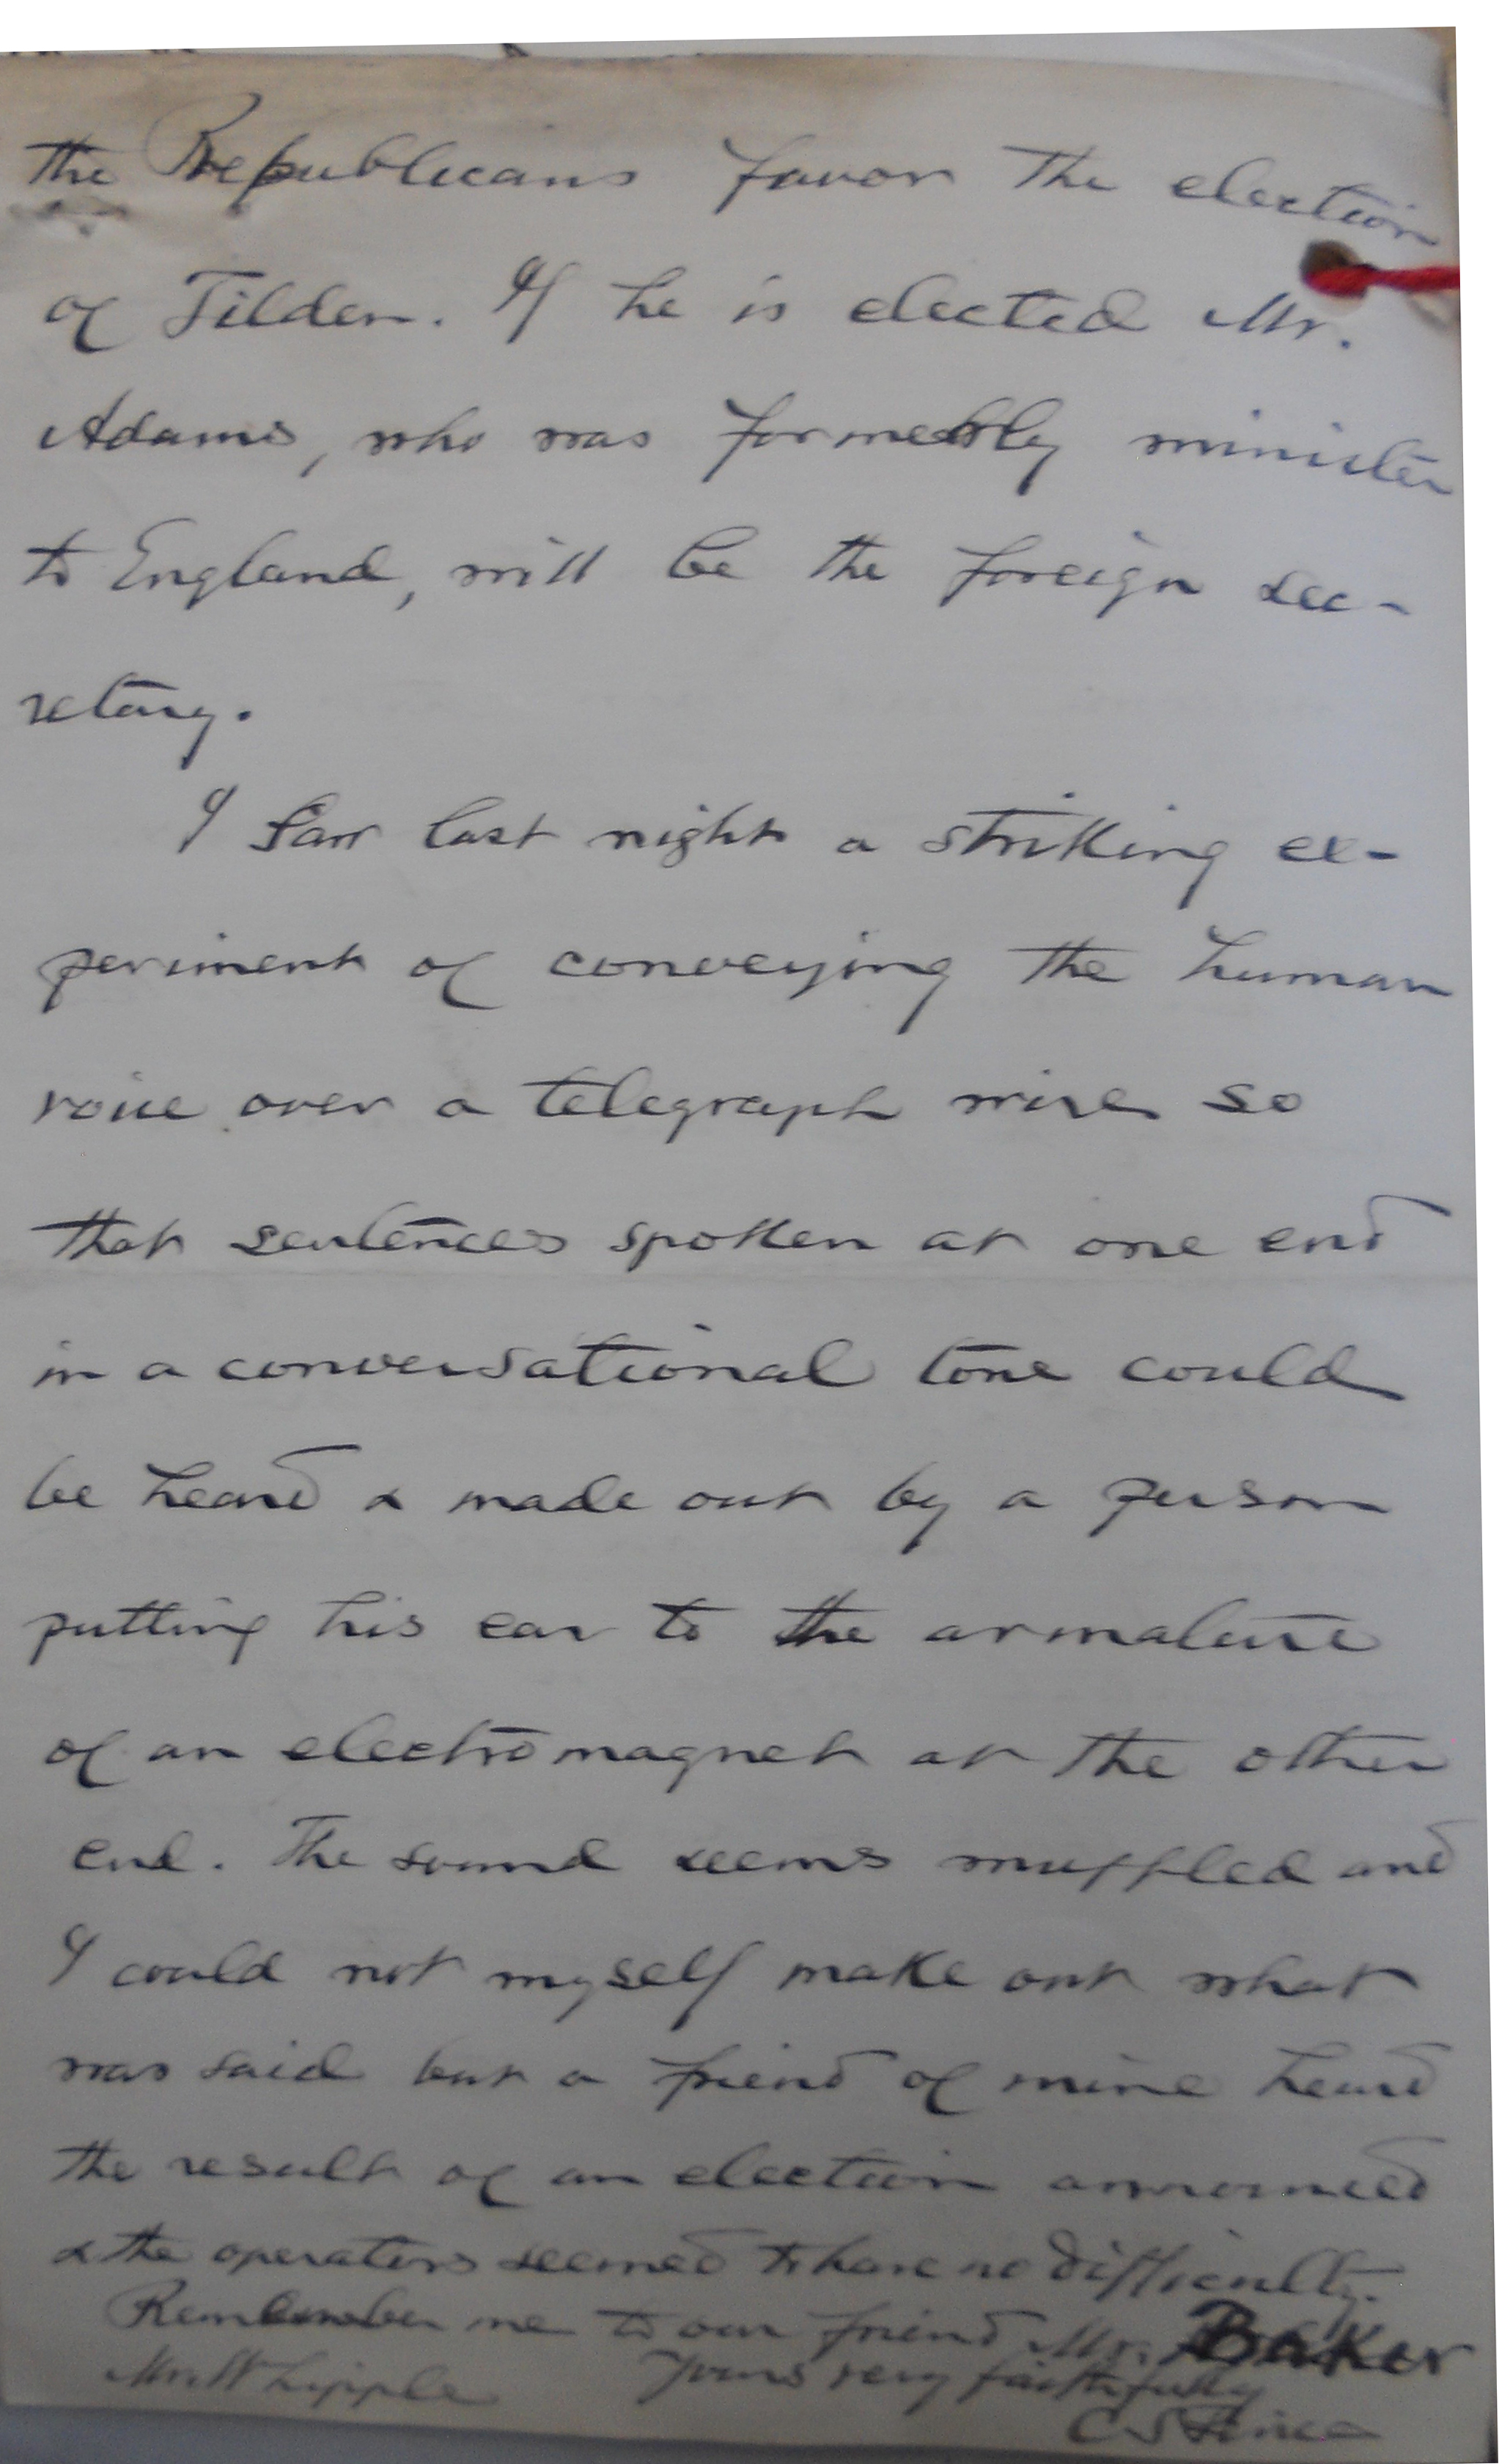 the Republicans favor the election
of Tilden. If he is elected Mr.
Adams, who was formerly minister
to England, will be the foreign sec-
retary.
I saw last night a striking ex-
periment of conveying the human
voice over a telegraph wire so
that sentences spoken at one end
in a conversational tone could
be heard & made out by a person
putting his ear to the armature
of an electromagnet at the other
end. The sound seems muffled and
I could not myself make out what
was said but a friend of mine heard
the result of an election announced
& the operators seemed to have no difficulty.
Remember me to our friend Mr. Baker
Yours very faithfully
Mr. Whipple
C S Peirce